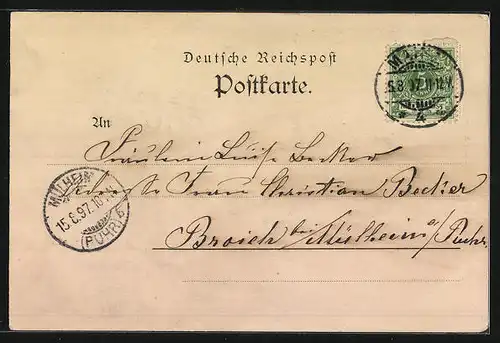 Deutsche Reichspost
Postkarte.
An
Fräulein Luise Becker
Adresse Frau Christian Becker
Broich bei Mülheim a/ Ruhr.
MÜLHEIM
15.8.97.10-11V.
(RUHR)
5.8.97.11-12V.
4
5